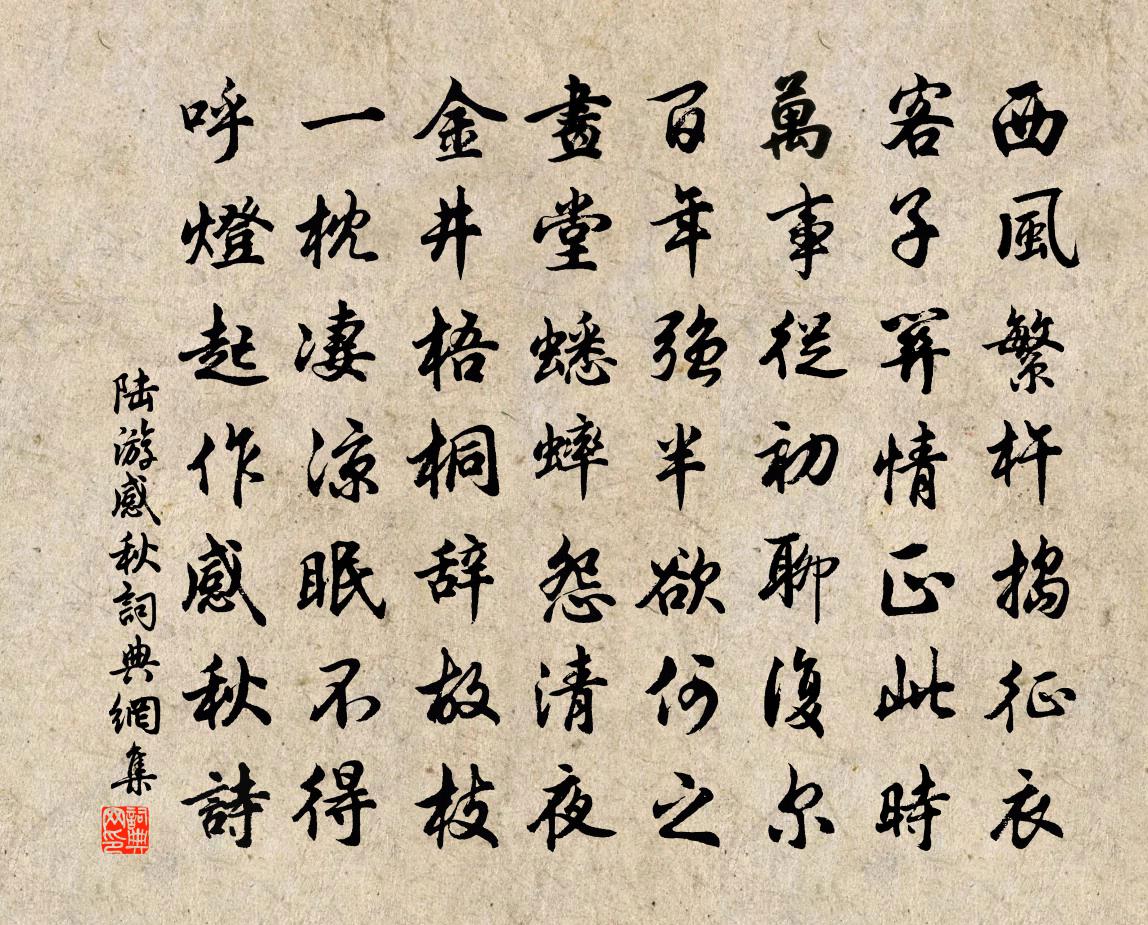 西風繁杵搗征衣
客子關情正此時
萬事從初聊復尔
百年強半欲何之
畫堂蟋蟀怨清夜
金井梧桐辞故枝
一枕淒涼眠不得
呼燈起作感秋詩
陆游感秋詞典網集
詞典
网印